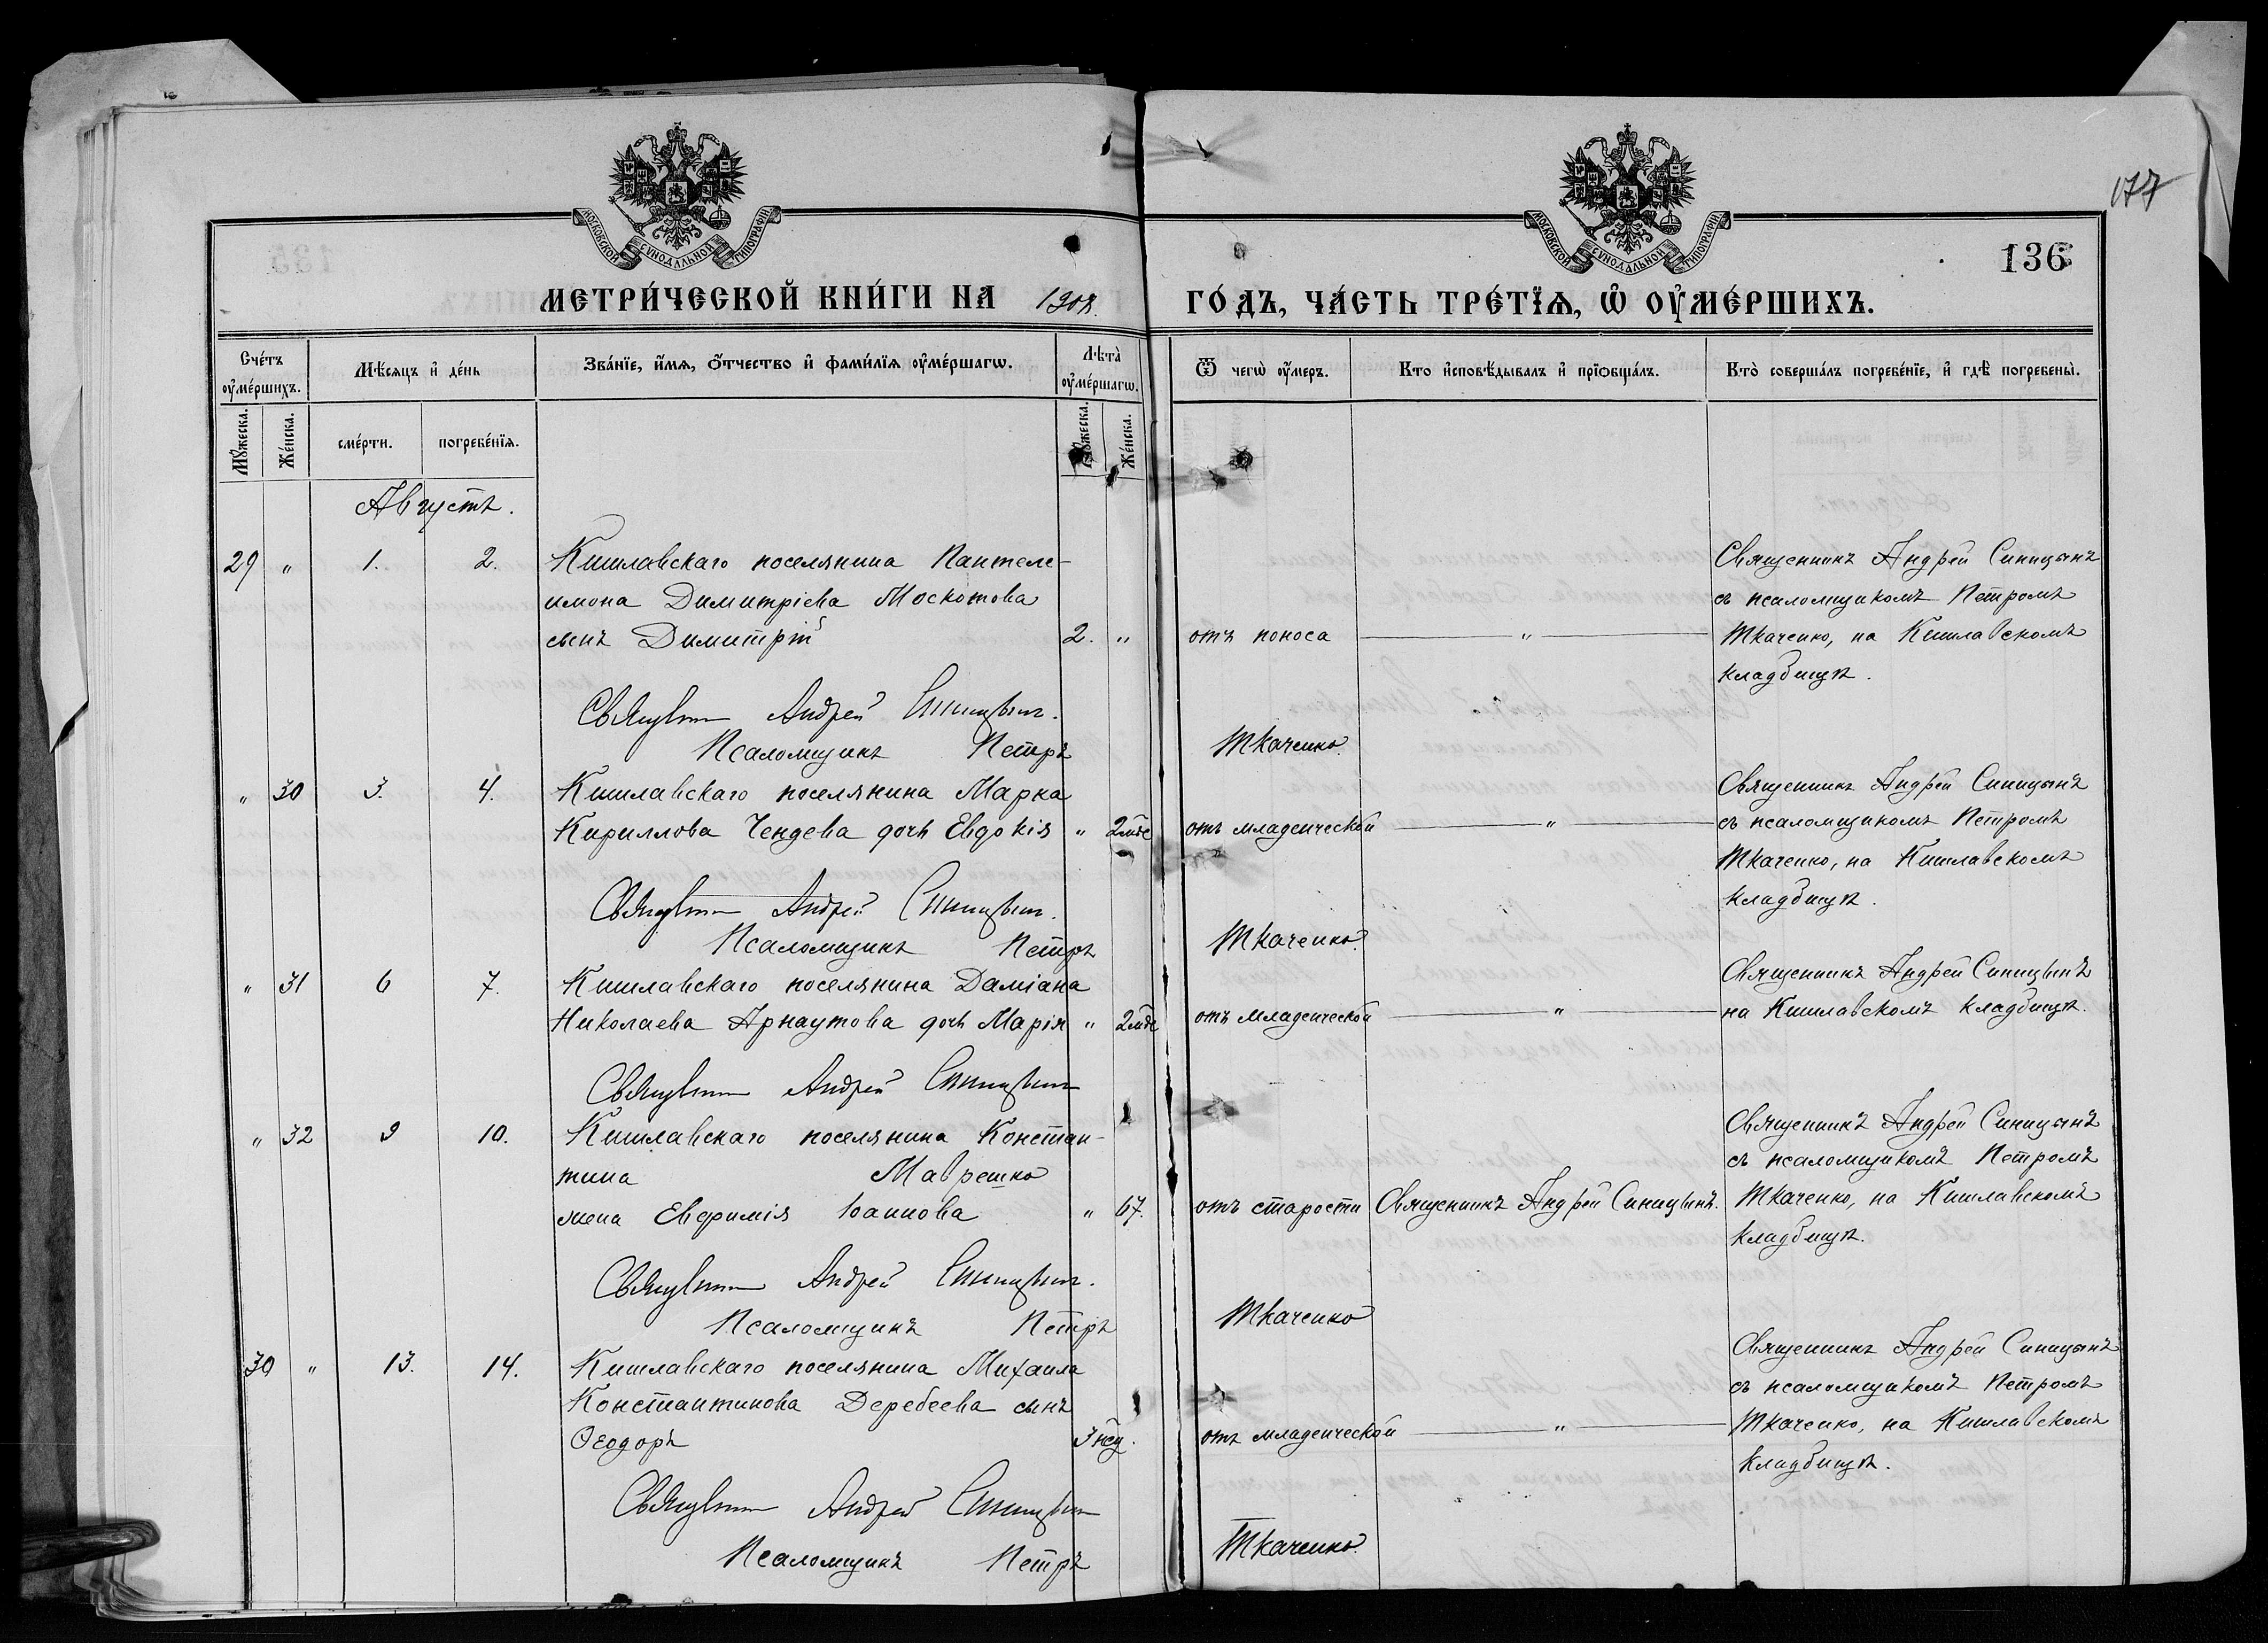 МОСКОВСКОЙ СѴНОДАЛЬНОЙ ТИПОГРАФІИ
МОСКОВСКОЙ СѴНОДАЛЬНОЙ ТИПОГРАФІИ
177
136
МЕТРИ́ЧЕСКОЙ КНИ́ГИ НА 1908. ГО́ДЪ, ЧА́СТЬ ТРЕ́ТЇѦ, Ѡ҆ ОУ҆МЕ́РШИХЪ.
Сче́тъ оу҆ме́ршихъ.
Мѣ́сѧцъ и҆ де́нь
Зва́нїе, и҆́мѧ, ѻ҆́тчество и҆ фами́лїѧ оу҆ме́ршагѡ.
Лѣта̀ оу҆ме́ршагѡ.
Ѿ чегѡ̀ оу҆́меръ.
Кто и҆сповѣ́дывалъ и҆ прїѻбща́лъ.
Кто̀ соверша́лъ погребе́нїе, и҆ гдѣ̀ погребены̀.
Мꙋ́жеска. Же́нска. сме́рти. погребе́нїѧ. Мꙋ́жеска. Же́нска.
Августъ.
29 " 1. 2. Кишлавскаго поселянина Пантеле-
имона Димитріева Москотова
сынъ Димитрій 2. " отъ поноса "
Священникъ Андрей Синицынъ
съ псаломщикомъ Петромъ
Ткаченко, на Кишлавскомъ
кладбищѣ.
Священникъ Андрей Синицынъ.
Псаломщикъ Петръ Ткаченко.
" 30 3. 4. Кишлавскаго поселянина Марка
Кириллова Чендева дочь Евдокія " 2 отъ младенческой "
Священникъ Андрей Синицынъ
съ псаломщикомъ Петромъ
Ткаченко, на Кишлавскомъ
кладбищѣ.
Священникъ Андрей Синицынъ.
Псаломщикъ Петръ Ткаченко.
" 31 6 7. Кишлавскаго поселянина Даміана
Николаева Арнаутова дочь Марія " 2 отъ младенческой "
Священникъ Андрей Синицынъ
на Кишлавскомъ кладбищѣ.
Священникъ Андрей Синицынъ
" 32 9 10. Кишлавскаго поселянина Констан-
тина Маврешко
жена Евфимія Іоаннова " 67. отъ старости Священникъ Андрей Синицынъ.
Священникъ Андрей Синицынъ
съ псаломщикомъ Петромъ
Ткаченко, на Кишлавскомъ
кладбищѣ.
Священникъ Андрей Синицынъ.
Псаломщикъ Петръ Ткаченко
30 " 13. 14. Кишлавскаго поселянина Михаила
Константинова Деребеева сынъ
Ѳеодоръ 3 нед. отъ младенческой "
Священникъ Андрей Синицынъ
съ псаломщикомъ Петромъ
Ткаченко, на Кишлавскомъ
кладбищѣ.
Священникъ Андрей Синицынъ
Псаломщикъ Петръ Ткаченко.